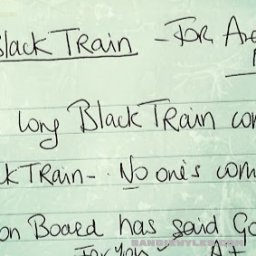 Black Train - For
long Black Train com
ck Train - No one's com
on Board has said Go
For you